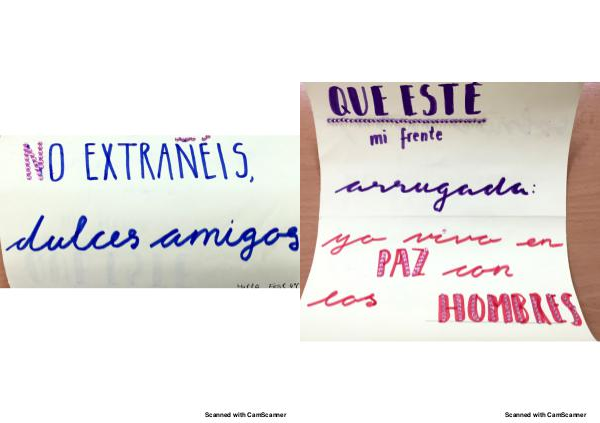 NO EXTRAÑÉIS,
dulces amigos
Scanned with CamScanner
QUE ESTÉ
mi frente
arrugada:
yo vivo en
PAZ con
los HOMBRES
Scanned with CamScanner